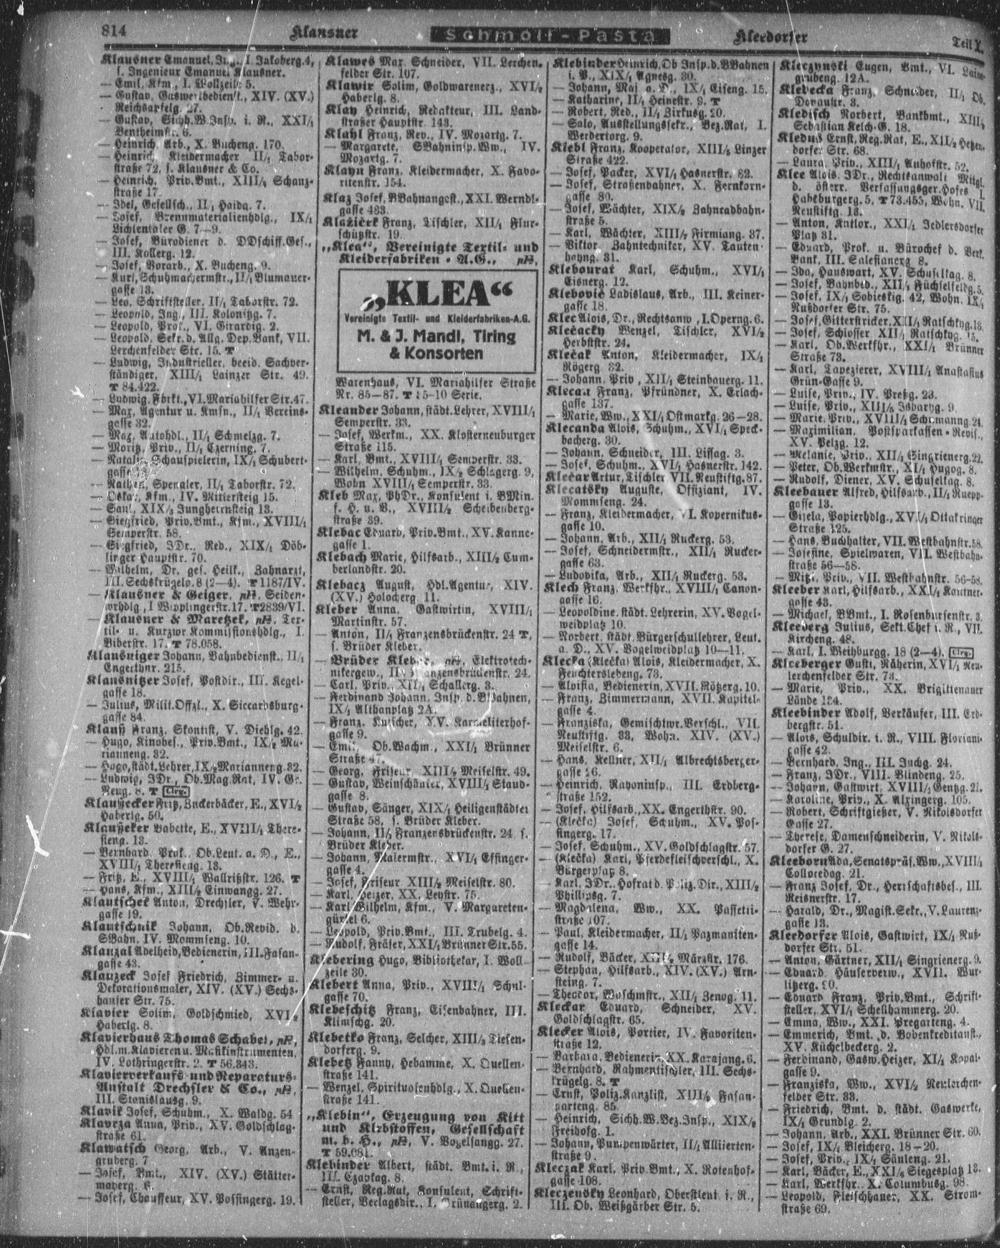 814 Klausner Schmoll-Pasta Kleedorfer Teil I.
Klausner Emanuel, Ing., I. Jakoberg. 4,
s. Ingenieur Emanuel Klausner.
— Emil, Kfm., I. Wollzeile 5.
— Gustav, XIV. (XV.)
Reichsapfelg. 27.
— Gustav, Südb.W.Insp. i. R., XXI/1
Bentheimstr. 6.
— Heinrich, Arb., X. Bucheng. 170.
— Heinrich, Kleidermacher II/1 Tabor-
straße 72, s. Klausner & Co.
— Heinrich, Priv.Bmt., XIII/5 Schanz-
straße 17.
— Idel, Gesellsch., II/1 Haidg. 7.
— Josef, Brennmaterialienhdlg., IX/1
Lichtentaler G. 7—9.
— Josef, Bürodiener d. DDschiff.Ges.,
III. Kollerg. 12.
— Josef, Vorarb., X. Bucheng. 9.
— Kurl, Schuhmachermstr., II/1 Blumauer-
gasse 13.
— Leo, Schriftsteller, II/1 Taborstr. 72.
— Leopold, Ing., III. Kolonitzg. 7.
— Leopold, Prof., VI. Girardig. 2.
— Leopold, Sekr. d. Allg. Dep.Bank, VII.
Lerchenfelder Str. 15. T
— Ludwig, Industrieller, beeid. Sachver-
ständiger, XIII/1 Lainzer Str. 49.
T 84.422.
— Ludwig, Fbrkt., VI. Mariahilfer Str. 47.
— Max, Agentur u. Kmsn., II/1 Vereins-
gasse 32.
— Max, Autohdl., II/1 Schmelzg. 7.
— Moritz, Priv., II/1 Czerning. 7.
— Natalie, Schauspielerin, IX/1 Schubert-
gasse
— Nathan, Spengler, II/1 Taborstr. 72.
— Oskar, Kfm., IV. Mittersteig 15.
— Saul, XIX/3 Jungherrnsteig 13.
— Siegfried, Priv.Bmt., Kfm., XVIII/1
Semperstr. 58.
— Siegfried, JDr., Red., XIX/1 Döb-
linger Hauptstr. 70.
— Wilhelm, Dr. ges. Heilk., Zahnarzt,
III. Sechskrügelg. 8 (2—4). T 1187/IV.
— Klausner & Geiger, pH, Seiden-
wrhdlg., I. Wipplingerstr. 17. T 2839/VI.
— Klausner & Maretzek, pH, Tex-
til- u. Kurzwr Kommissionshdlg., I.
Biberstr. 17. T 78.058.
Klausniger Johann, Bahnbedienst., II/1
Engerthnr. 215.
Klausnitzer Josef, Postdir., III. Kegel-
gasse 18.
— Julius, Milit.Offzl., X. Siccardsburg-
gasse 84.
Klauß Franz, Skontist, V. Diehlg. 42.
— Hugo, Kinobes., Priv.Bmt., IX/2 Ma-
rianneng. 32.
— Hugo, städt. Lehrer, IX/2 Marianneng. 32.
— Ludwig, JDr., Ob.Mag.Rat, IV. Gr.
Neug. 8. T Clrg.
Klaußecker Fritz, Zuckerbäcker, E., XVI/2
Haberlg. 50.
Klaußeker Babette, E., XVIII/1 There-
sieng. 13.
— Bernhard, Prok., Ob.Leut. a. D., E.,
XVIII/1 Theresieng. 13.
— Fritz, E., XVIII/1 Wallrißstr. 126. T
— Hans, Kfm., XIII/2 Einwangg. 27.
Klautschek Anton, Drechsler, V. Wehr-
gasse 19.
Klautschnik Johann, Ob.Revid. d.
SBahn. IV. Mommseng. 10.
Klanzal Adelheid, Bedienerin, III. Fasan-
gasse 43.
Klauzeck Josef Friedrich, Zimmer- u.
Dekorationsmaler, XIV. (XV.) Sechs-
hauser Str. 75.
Klavier Solim, Goldschmied, XVI/2
Haberlg. 8.
Klavierhaus Thomas Schabel, pH,
Hdl. m. Klavieren u. Musikinstrumenten,
IV. Lothringerstr. 2. T 56.343.
Klavierverkaufs- und Reparaturs-
Anstalt Drechsler & Co., pH,
III. Stanislausg. 9.
Klavik Josef, Schuhm., X. Waldg. 54.
Klavrza Anna, Priv., XV. Goldschlag-
straße 61.
Klawatsch Georg, Arb., V. Anzen-
gruberg. 7.
— Josef, Bmt., XIV. (XV.) Stätter-
mayerg. 6.
— Josef, Chauffeur, XV. Possingerg. 19.
Klawes Max, Schneider, VII. Lerchen-
felder Str. 107.
Klawir Solim, Goldwarenerz., XVI/2
Haberlg. 8.
Klay Heinrich, Redakteur, III. Land-
straßer Hauptstr. 143.
Klayl Franz, Rev., IV. Mozartg. 7.
— Margarete, SBahninsp.Ww., IV.
Mozartg. 7.
Klayn Franz, Kleidermacher, X. Favo-
ritenstr. 154.
Klaz Josef, BBahnangest., XXI. Werndl-
gasse 483.
Klažičer Franz, Tischler, XII/1 Flur-
schützstr. 19.
„Klea“, Vereinigte Textil- und
Kleiderfabriken - A.G., pH,
„KLEA“
Vereinigte Textil- und Kleiderfabriken-A.G.
M. & J. Mandl, Tiring
& Konsorten
Warenhaus, VI. Mariahilfer Straße
Nr. 85—87. T 15-10 Serie.
Kleander Johann, städt. Lehrer, XVIII/1
Semperstr. 33.
— Josef, Werkm., XX. Klosterneuburger
Straße 115.
— Karl, Bmt., XVIII/1 Semperstr. 33.
— Wilhelm, Schuhm., IX/2 Schlagerg. 9,
Wohn. XVIII/1 Semperstr. 33.
Kleb Max, PhDr., Konsulent i. BMin.
f. H. u. V., XVIII/2 Scheibenberg-
straße 39.
Klebac Eduard, Priv.Bmt., XV. Kanne-
gasse 1.
Klebach Marie, Hilfsarb., XIII/2 Cum-
berlandstr. 20.
Klebacz August, Hdl.Agentur, XIV.
(XV.) Holocherg. 11.
Kleber Anna, Gastwirtin, XVIII/1
Martinstr. 57.
— Anton, II/1 Franzensbrückenstr. 24 T,
s. Brüder Kleber.
— Brüder Kleber, pH, Elektrotech-
nikergew., II/1 Franzensbrückenstr. 24.
— Carl, Priv., XII/1 Schallerg. 3.
— Ferdinand Johann, Insp. d. BBahnen,
IX/4 Althanplatz 2A.
— Franz, Kutscher, XV. Karmeliterhof-
gasse 9.
— Emil, Ob.Wachm., XXI/1 Brünner
Straße
— Georg, Friseur, XIII/2 Meiselstr. 49.
— Gustav, Weinschänker, XVIII/1 Staud-
gasse 8.
— Gustav, Sänger, XIX/1 Heiligenstädter
Straße 58, s. Brüder Kleber.
— Johann, II/1 Franzensbrückenstr. 24 s.
Brüder Kleber.
— Johann, Malermstr., XVI/1 Effinger-
gasse 4.
— Josef, Friseur XIII/2 Meiselstr. 80.
— Karl, Heizer, XX. Leystr. 75.
— Karl Wilhelm, Kfm., V. Margareten-
gürtel 6.
— Leopold, Priv.Bmt., III. Trubelg. 4.
— Rudolf, Fräser, XXI/1 Brünner Str. 55.
Klebering Hugo, Bibliothekar, I. Woll-
zeile 30.
Klebert Anna, Priv., XVIII/1 Schul-
gasse 70.
Klebeschitz Franz, Eisenbahner, III.
Klimschg. 20.
Klebetko Franz, Selcher, XIII/3 Tiefen-
dorferg. 9.
Klebetz Fanny, Hebamme, X. Quellen-
straße 141.
— Wenzel, Spirituosenhdlg., X. Quellen-
straße 141.
„Klebin“, Erzeugung von Kitt
und Klebstoffen, Gesellschaft
m. b. H., pH, V. Vogelsangg. 27.
T 59.081.
Klebinder Albert, städt. Bmt. i. R.,
III. Czapkag. 8.
— Ernst, Reg.Rat, Konsulent, Schrift-
steller, Verlagsdir., I. Grünangerg. 2.
Klebinder Heinrich, Ob Insp. d. BBahnen
i. P., XIX/1 Agnesg. 30.
— Johann, Maj. a. D., IX/4 Eiseng. 15.
— Katharine, II/1 Heinestr. 9. T
— Robert, Red., II/1 Zirkusg. 20.
— Salo, Ausstellungssekr., Bez.Rat, I.
Werdertorg. 9.
Klebl Franz, Kooperator, XIII/1 Linzer
Straße 422.
— Josef, Packer, XVI/1 Hasnerstr. 62.
— Josef, Straßenbahner, X. Fernkorn-
gasse 80.
— Josef, Wächter, XIX/2 Zahnradbahn-
straße 5.
— Karl, Wächter, XIII/3 Firmiang. 37.
— Viktor, Zahntechniker, XV. Tauten-
hayng. 31.
Klebourat Karl, Schuhm., XVI/1
Eisnerg. 12.
Klebovic Ladislaus, Arb., III. Keiner-
gasse 18.
Klec Alois, Dr., Rechtsanw., I. Operng. 6.
Klečacky Wenzel, Tischler, XVI/2
Herbststr. 24.
Klečak Anton, Kleidermacher, IX/1
Rögerg. 32.
— Johann, Priv., XII/1 Steinbauerg. 11.
Klecan Franz, Pfründner, X. Erlach-
gasse 137.
— Marie, Ww., XXI/1 Ostmarkg. 26—28.
Klecanda Alois, Schuhm., XVI/1 Speck-
bacherg. 30.
— Johann, Schneider, III. Lißag. 3.
— Josef, Schuhm., XVI/1 Hasnerstr. 142.
Klečar Artur, Tischler VII. Neustiftg. 87.
Klecatsky Auguste, Offiziant, IV.
Mommseng. 24.
— Franz, Kleidermacher, VI. Kopernikus-
gasse 10.
— Johann, Arb., XII/1 Ruckerg. 53.
— Josef, Schneidermstr., XII/1 Rucker-
gasse 63.
— Ludovika, Arb., XII/1 Ruckerg. 53.
Klech Franz, Werkfhr., XVIII/1 Canon-
gasse 16.
— Leopoldine, städt. Lehrerin, XV. Vogel-
weidplatz 10.
— Norbert, städt. Bürgerschullehrer, Leut.
a. D., XV. Vogelweidplatz 10—11.
Klecka (Klečka) Alois, Kleidermacher, X.
Feuchterslebeng. 73.
— Aloisia, Bedienerin, XVII. Rötzerg. 10.
— Franz, Zimmermann, XVII. Kapitel-
gasse 4.
— Franziska, Gemischtwr.Verschl., VII.
Neustiftg. 33, Wohn. XIV. (XV.)
Meiselstr. 6.
— Hans, Kellner, XII/1 Albrechtsberger-
gasse 16.
— Heinrich, Rayoninsp., III. Erdberg-
straße 152.
— Josef, Hilfsarb., XX. Engerthstr. 90.
— (Klečka) Josef, Schuhm., XV. Pos-
singerg. 17.
— Josef, Schuhm., XV. Goldschlagstr. 57.
— (Klečka) Karl, Pferdefleischverschl., X.
Bürgerplatz 8.
— Karl, JDr., Hofrat d. Poliz.Dir., XIII/2
Philipsg. 7.
— Magdalena, Ww., XX. Pasetti-
straße 107.
— Paul, Kleidermacher, II/1 Pazmaniten-
gasse 14.
— Rudolf, Bäcker, XIII/5 Märzstr. 176.
— Stephan, Hilfsarb., XIV. (XV.) Arn-
steing. 7.
— Theodor, Waschmstr., XII/1 Zenog. 11.
Kleckar Eduard, Schneider, XV.
Goldschlagstr. 65.
Klecker Alois, Portier, IV. Favoriten-
straße 12.
— Barbara, Bedienerin, XX. Karajang. 6.
— Bernhard, Rahmentischler, III. Sechs-
krügelg. 8. T
— Ernst, Poliz.Kanzlist, XIII/4 Fasan-
garteng. 85.
— Heinrich, Südb.W.Bez.Insp., XIX/2
Freihofg. 1.
— Johann, Pumpenwärter, II/1 Alliierten-
straße 9.
Kleczak Karl, Priv.Bmt., X. Rotenhof-
gasse 108.
Kleczensky Leonhard, Oberstleut. i. R.,
III. Ob. Weißgärber Str. 5.
Kleczynski Eugen, Bmt., VI. Laim-
grubeng. 12A.
Kledecka Franz, Schneider, II/1 Ob.
Donaustr. 3.
Kledisch Norbert, Bankbmt., XIII/4
Sebastian Kelch-G. 18.
Kledus Ernst, Reg.Rat, E., XII/2 Hetzen-
dorfer Str. 68.
— Laura, Priv., XIII/1 Auhofstr. 52.
Klee Alois, JDr., Rechtsanwalt Mitgl.
d. österr. Verfassungsger.Hofes, I.
Habsburgerg. 5, T 73.455, Wohn. VII.
Neustiftg. 13.
— Anton, Antlor., XXI/1 Jedlersdorfer
Platz 31.
— Eduard, Prok. u. Bürochef d. Verk.
Bank, III. Salesianerg. 8.
— Ida, Hauswart, XV. Schuselkag. 8.
— Josef, Bahnbd., XII/2 Füchselfeldg. 5.
— Josef, IX/4 Sobieskig. 42, Wohn. IX/4
Nußdorfer Str. 75.
— Josef, Gitterstricker, XII/1 Ratschkyg. 18.
— Josef, Schlosser XII/1 Ratschkyg. 15.
— Karl, Ob.Werkfhr., XXI/1 Brünner
Straße 73.
— Karl, Tapezierer, XVIII/1 Anastasius
Grün-Gasse 9.
— Luise, Priv., IV. Preßg. 23.
— Luise, Priv., XIII/1 Isbaryg. 9.
— Marie, Priv., XVIII/1 Schumanng. 24.
— Maximilian, Postsparkassen-Revis.,
XV. Pelzg. 12.
— Melanie, Priv., XII/1 Singrienerg. 22.
— Peter, Ob.Werkfhr., XI/1 Hugog. 8.
— Rudolf, Diener, XV. Schuselkag. 8.
Kleebauer Alfred, Hilfsarb., II/2 Ruepp-
gasse 13.
— Gisela, Papierhdlg., XVI/1 Ottakringer
Straße 125.
— Hans, Buchhalter, VII. Westbahnstr. 58.
— Josefine, Spielwaren, VII. Westbahn-
straße 56—58.
— Mitzi, Priv., VII. Westbahnstr. 56-58.
Kleeber Karl, Hilfsarb., XXI/4 Kantner-
gasse 43.
— Michael, BBmt., I. Rosenbursenstr. 3.
Kleeberg Julius, Sekt.Chef i. R., VII.
Kircheng. 48.
— Karl, I. Weihburgg. 18 (2—4). Clrg.
Kleeberger Gusti, Näherin, XVI/1 Neu-
lerchenfelder Str. 73.
— Marie, Priv., XX. Brigittenauer
Lände 124.
Kleebinder Adolf, Verkäufer, III. Erd-
bergstr. 51.
— Alois, Schuldir. i. R., VIII. Floriani-
gasse 42.
— Bernhard, Ing., III. Juchg. 24.
— Franz, JDr., VIII. Blindeng. 25.
— Johann, Gastwirt, XVIII/1 Gentzg. 21.
— Karoline, Priv., X. Alxingerg. 105.
— Robert, Schriftgießer, V. Nikolsdorfer
Gasse 27.
— Therese, Damenschneiderin, V. Nikols-
dorfer G. 27.
Kleeborn Ada, Senatspräs.Ww., XVIII/1
Colloredog. 21.
— Franz Josef, Dr., Herrschaftsbes., III.
Reisnerstr. 17.
— Harald, Dr., Magist.Sekr., V. Laurenz-
gasse 13.
Kleedorfer Alois, Gastwirt, IX/4 Nuß-
dorfer Str. 51.
— Anton, Gärtner, XII/1 Singrienerg. 9.
— Eduard, Häuserverw., XVII. Wur-
litzerg. 90.
— Eduard Franz, Priv.Bmt., Schrift-
steller, XVI/1 Schellhammerg. 20.
— Emma, Ww., XXI. Pregarteng. 4.
— Emmerich, Bmt. d. Bodenkreditanst.,
XV. Küchelbeckerg. 2.
— Ferdinand, Gasw.Heizer, XI/1 Kopal-
gasse 9.
— Franziska, Ww., XVI/1 Neulerchen-
felder Str. 33.
— Friedrich, Bmt. d. städt. Gaswerke,
IX/4 Grundlg. 2.
— Johann, Arb., XXI. Brünner Str. 60.
— Josef, IX/4 Bleicherg. 18—20.
— Josef, Priv., IX/4 Säuleng. 21.
— Karl, Bäcker, E., XXI/4 Siegesplatz 13.
— Karl, Werkfhr., X. Columbusg. 98.
— Leopold, Fleischhauer, XX. Strom-
straße 69.